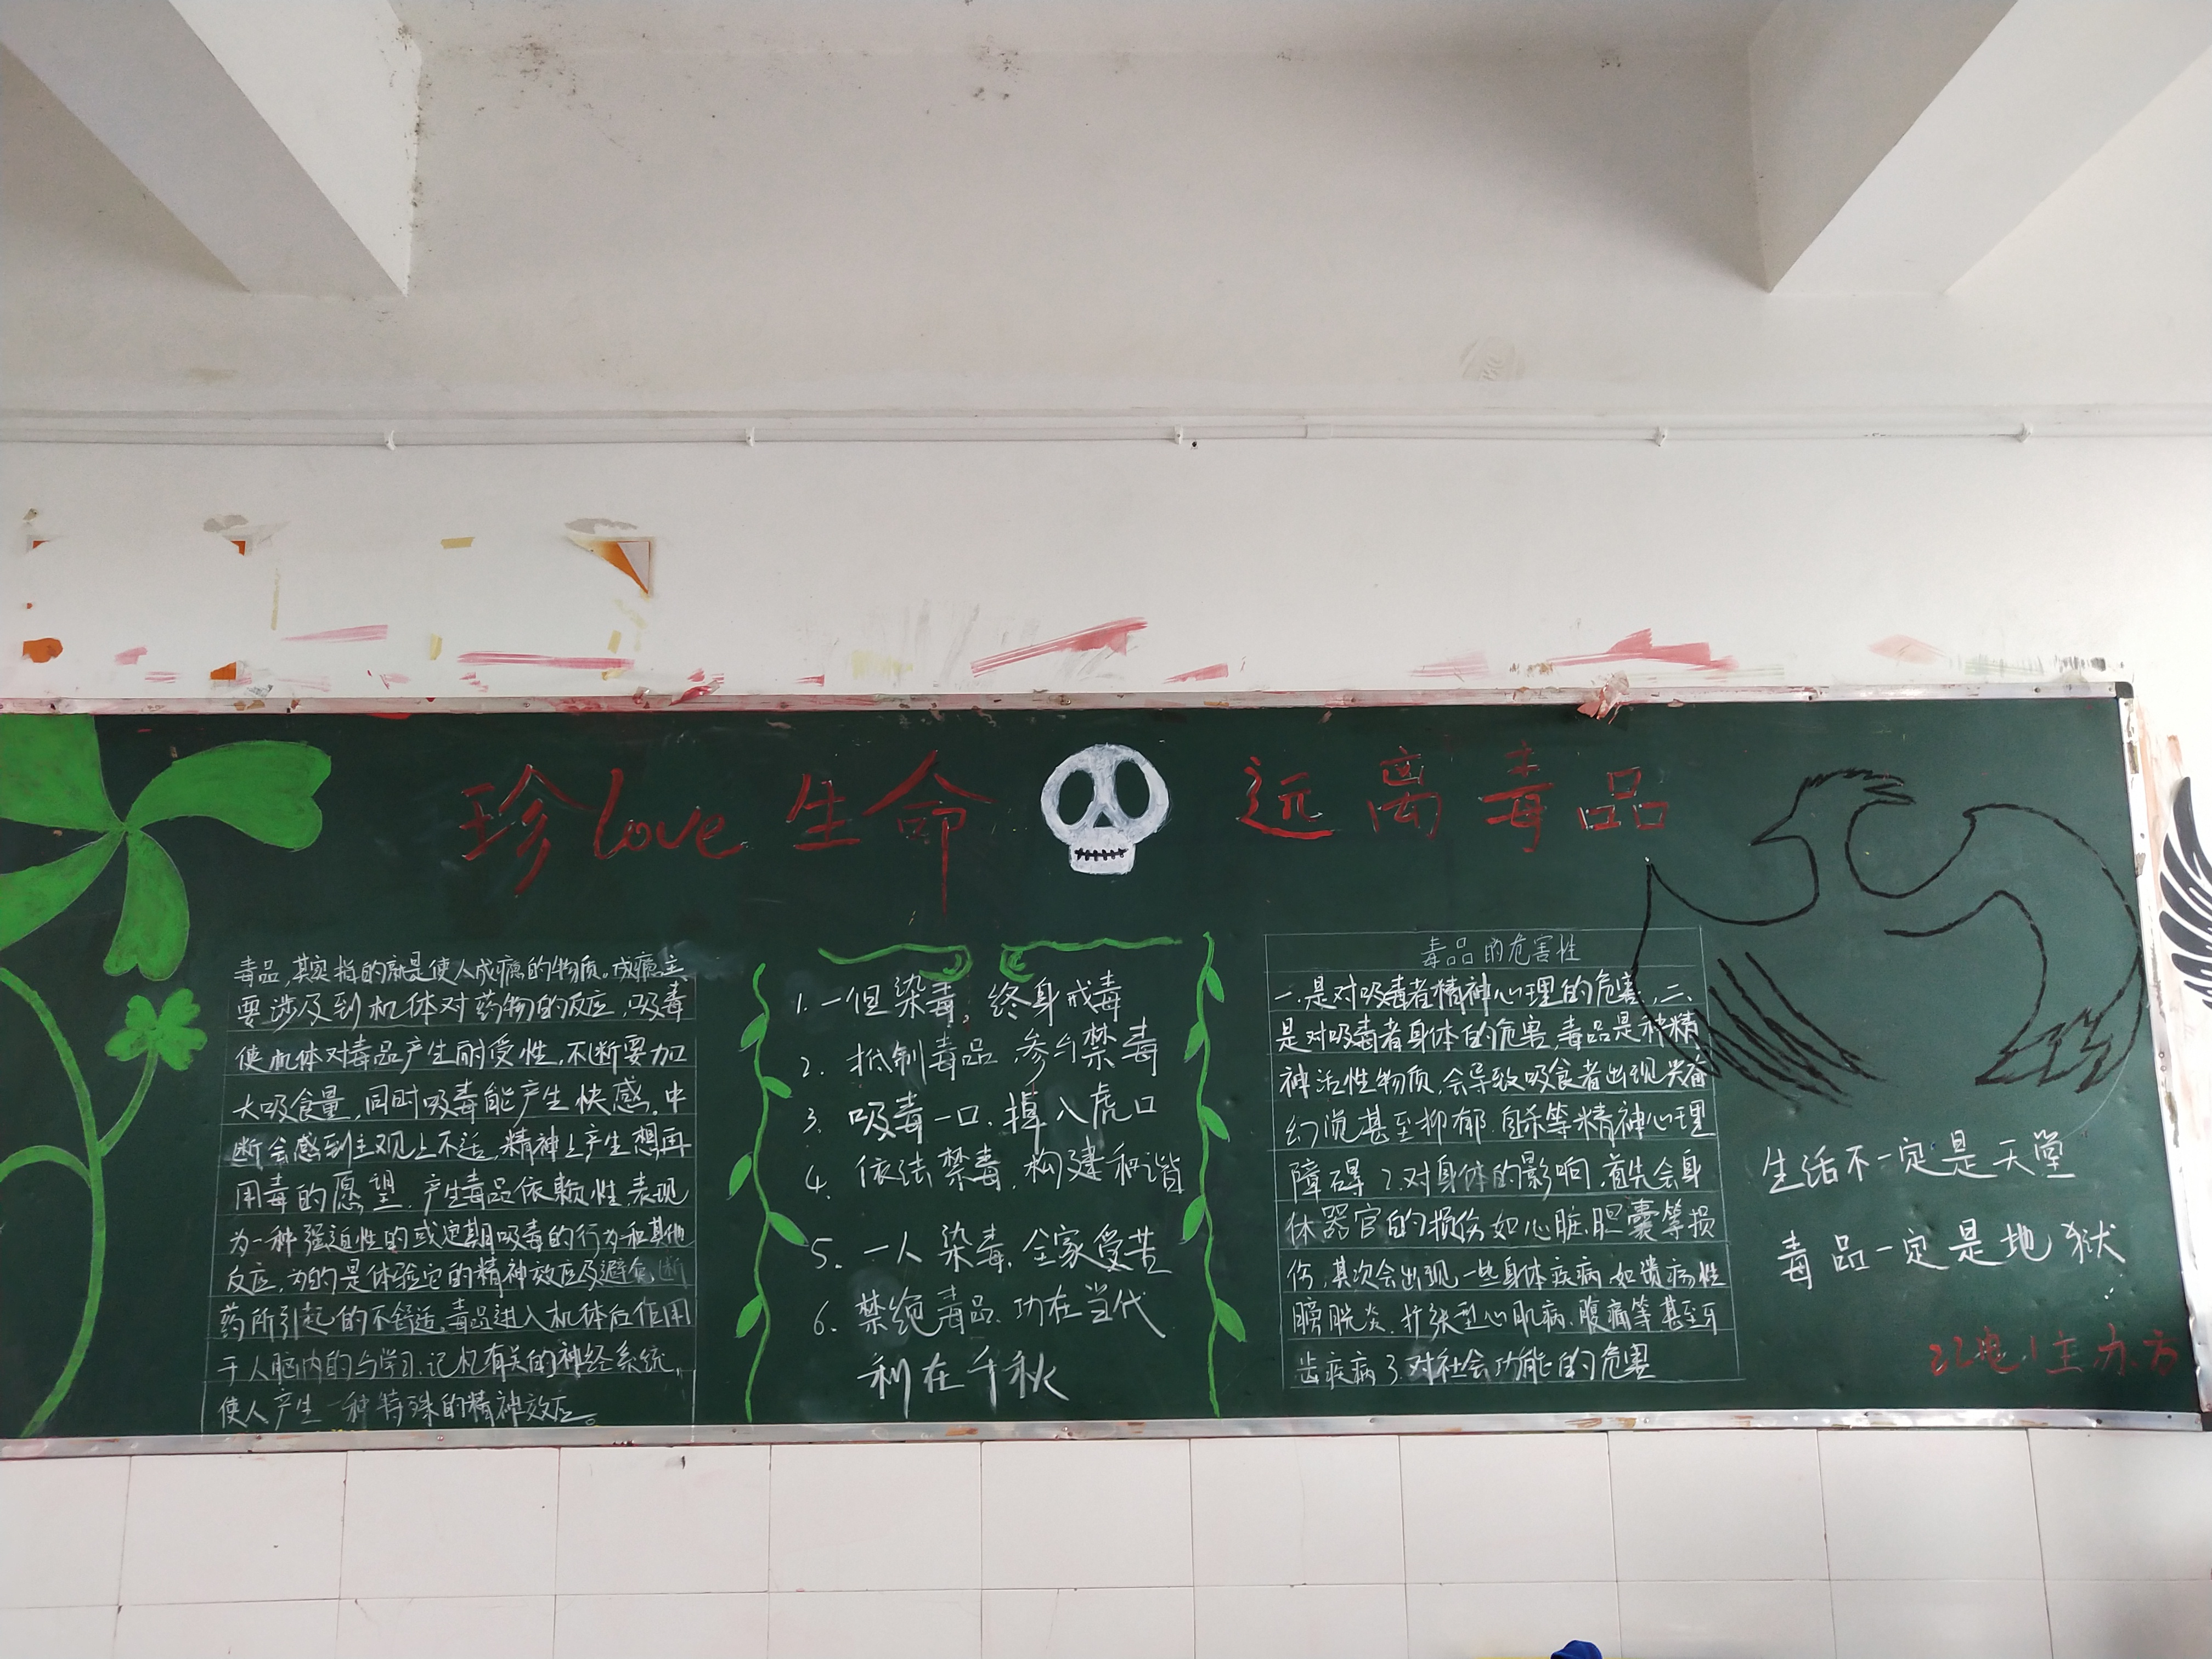 珍love生命 远离毒品
毒品,其实指的就是使人成瘾的物质。成瘾主
要涉及到机体对药物的反应,吸毒
使机体对毒品产生耐受性,不断要加
大吸食量,同时吸毒能产生快感,中
断会感到主观上不适,精神上产生想再
用毒的愿望,产生毒品依赖性,表现
为一种强迫性的或定期吸毒的行为和其他
反应,为的是体验它的精神效应及避免断
药所引起的不舒适,毒品进入机体后作用
于人脑内的与学习、记忆有关的神经系统,
使人产生一种特殊的精神效应。
1.一但染毒,终身戒毒
2.抵制毒品 参与禁毒
3.吸毒一口,掉入虎口
4.依法禁毒,构建和谐
5.一人染毒,全家受苦
6.禁绝毒品,功在当代
利在千秋
毒品的危害性
一.是对吸毒者精神心理的危害,二
是对吸毒者身体的危害,毒品是种精
神活性物质,会导致吸食者出现兴奋
幻觉甚至抑郁、自杀等精神心理
障碍 2.对身体的影响,首先会身
体器官的损伤如心脏、胆囊等损
伤,其次会出现一些身体疾病,如溃疡性
膀胱炎、扩张型心肌病、腹痛等甚至牙
齿疾病 3.对社会功能的危害
生活不一定是天堂
毒品一定是地狱
22电1主办方